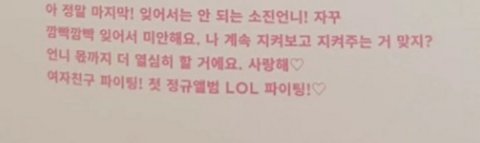 아 정말 마지막! 잊어서는 안 되는 소진언니! 자꾸
깜빡깜빡 잊어서 미안해요. 나 계속 지켜보고 지켜주는 거 맞지?
언니 몫까지 더 열심히 할 거예요. 사랑해♡
여자친구 파이팅! 첫 정규앨범 LOL 파이팅!♡